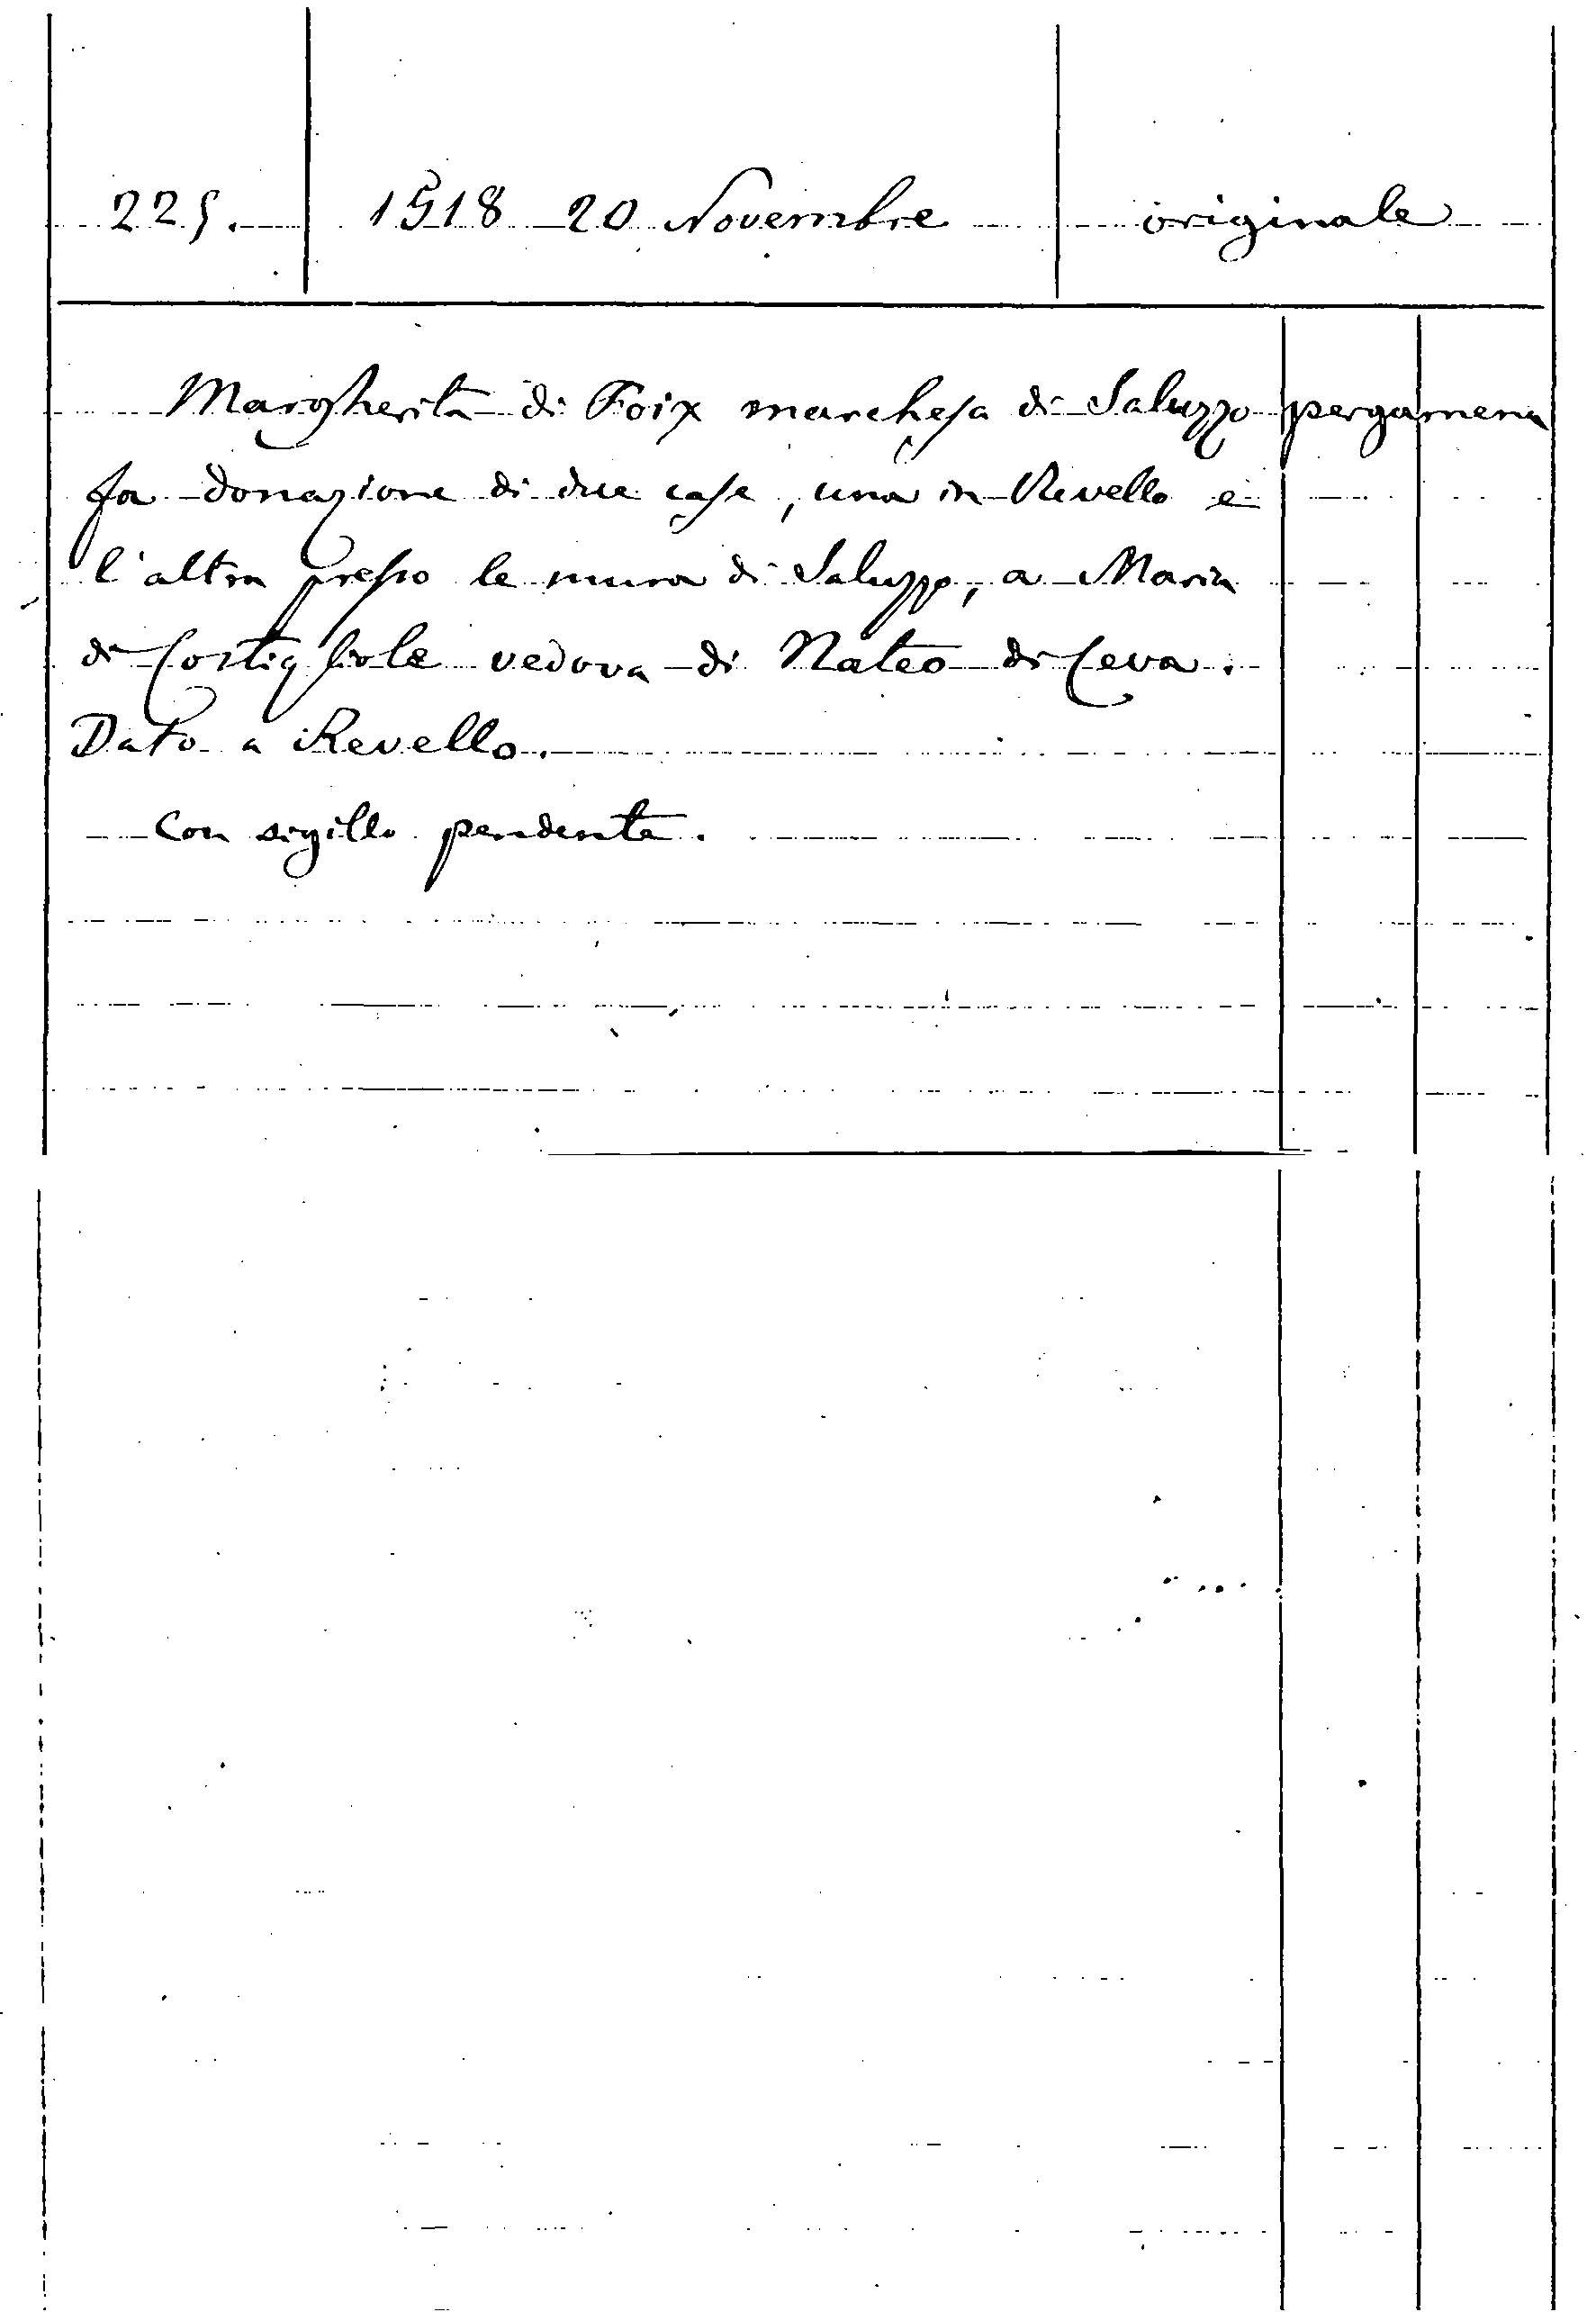 225. 1518 20 Novembre originale
Margherita di Foix marchesa di Saluzzo pergamena
fa donazione di due case, una in Revello e
l'altra presso le mura di Saluzzo, a Maria
di Costigliole vedova di Mateo di Ceva.
Dato a Revello.
Con sigillo pendente.